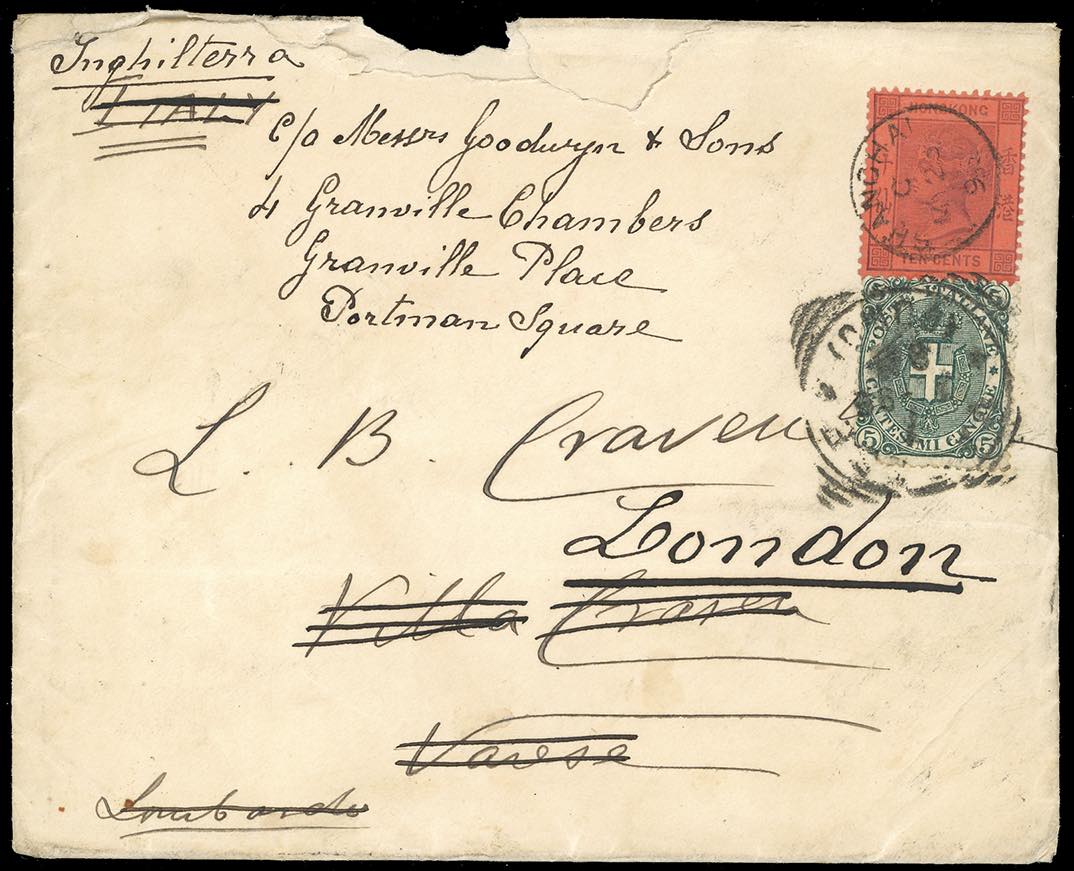 Inghilterra
ITALY
c/o Messrs Goodwyn & Sons
4 Granville Chambers
Granville Place
Portman Square
L. B. Craven
London
Villa Craven
Varese
Lombardo
HONGKONG
SHANGHAI
TEN CENTS
POSTE ITALIANE
CENTESIMI CINQUE
5 5